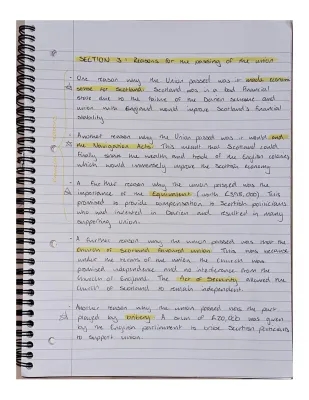 SECTION 3: Reasons for the passing of the union
- One reason why the Union passed was it made economic
sense for Scotland. Scotland was in a bad financial
state due to the failure of the Darien scheme and
union with England would improve Scotland's financial
stability.
- Another reason why the Union passed was it would end
the 'Navigation Acts'. This meant that Scotland could
finally share the wealth and trade of the English colonies
which would immensely improve the Scottish economy.
- A further reason why the union passed was the
importance of the 'Equivalent' (worth £398,000). This
promised to provide compensation to Scottish politicians
who had invested in Darien and resulted in many
supporting union.
- A further reason why the union passed was that the
Church of Scotland favoured union. This was because
under the terms of the union, the Church was
promised independence and no interference from the
Church of England. The 'Act of Security' allowed the
Church of Scotland to remain independent.
- Another reason why the union passed was the part
played by bribery. A sum of £20,000 was given
by the English parliament to bribe Scottish politicians
to support union.